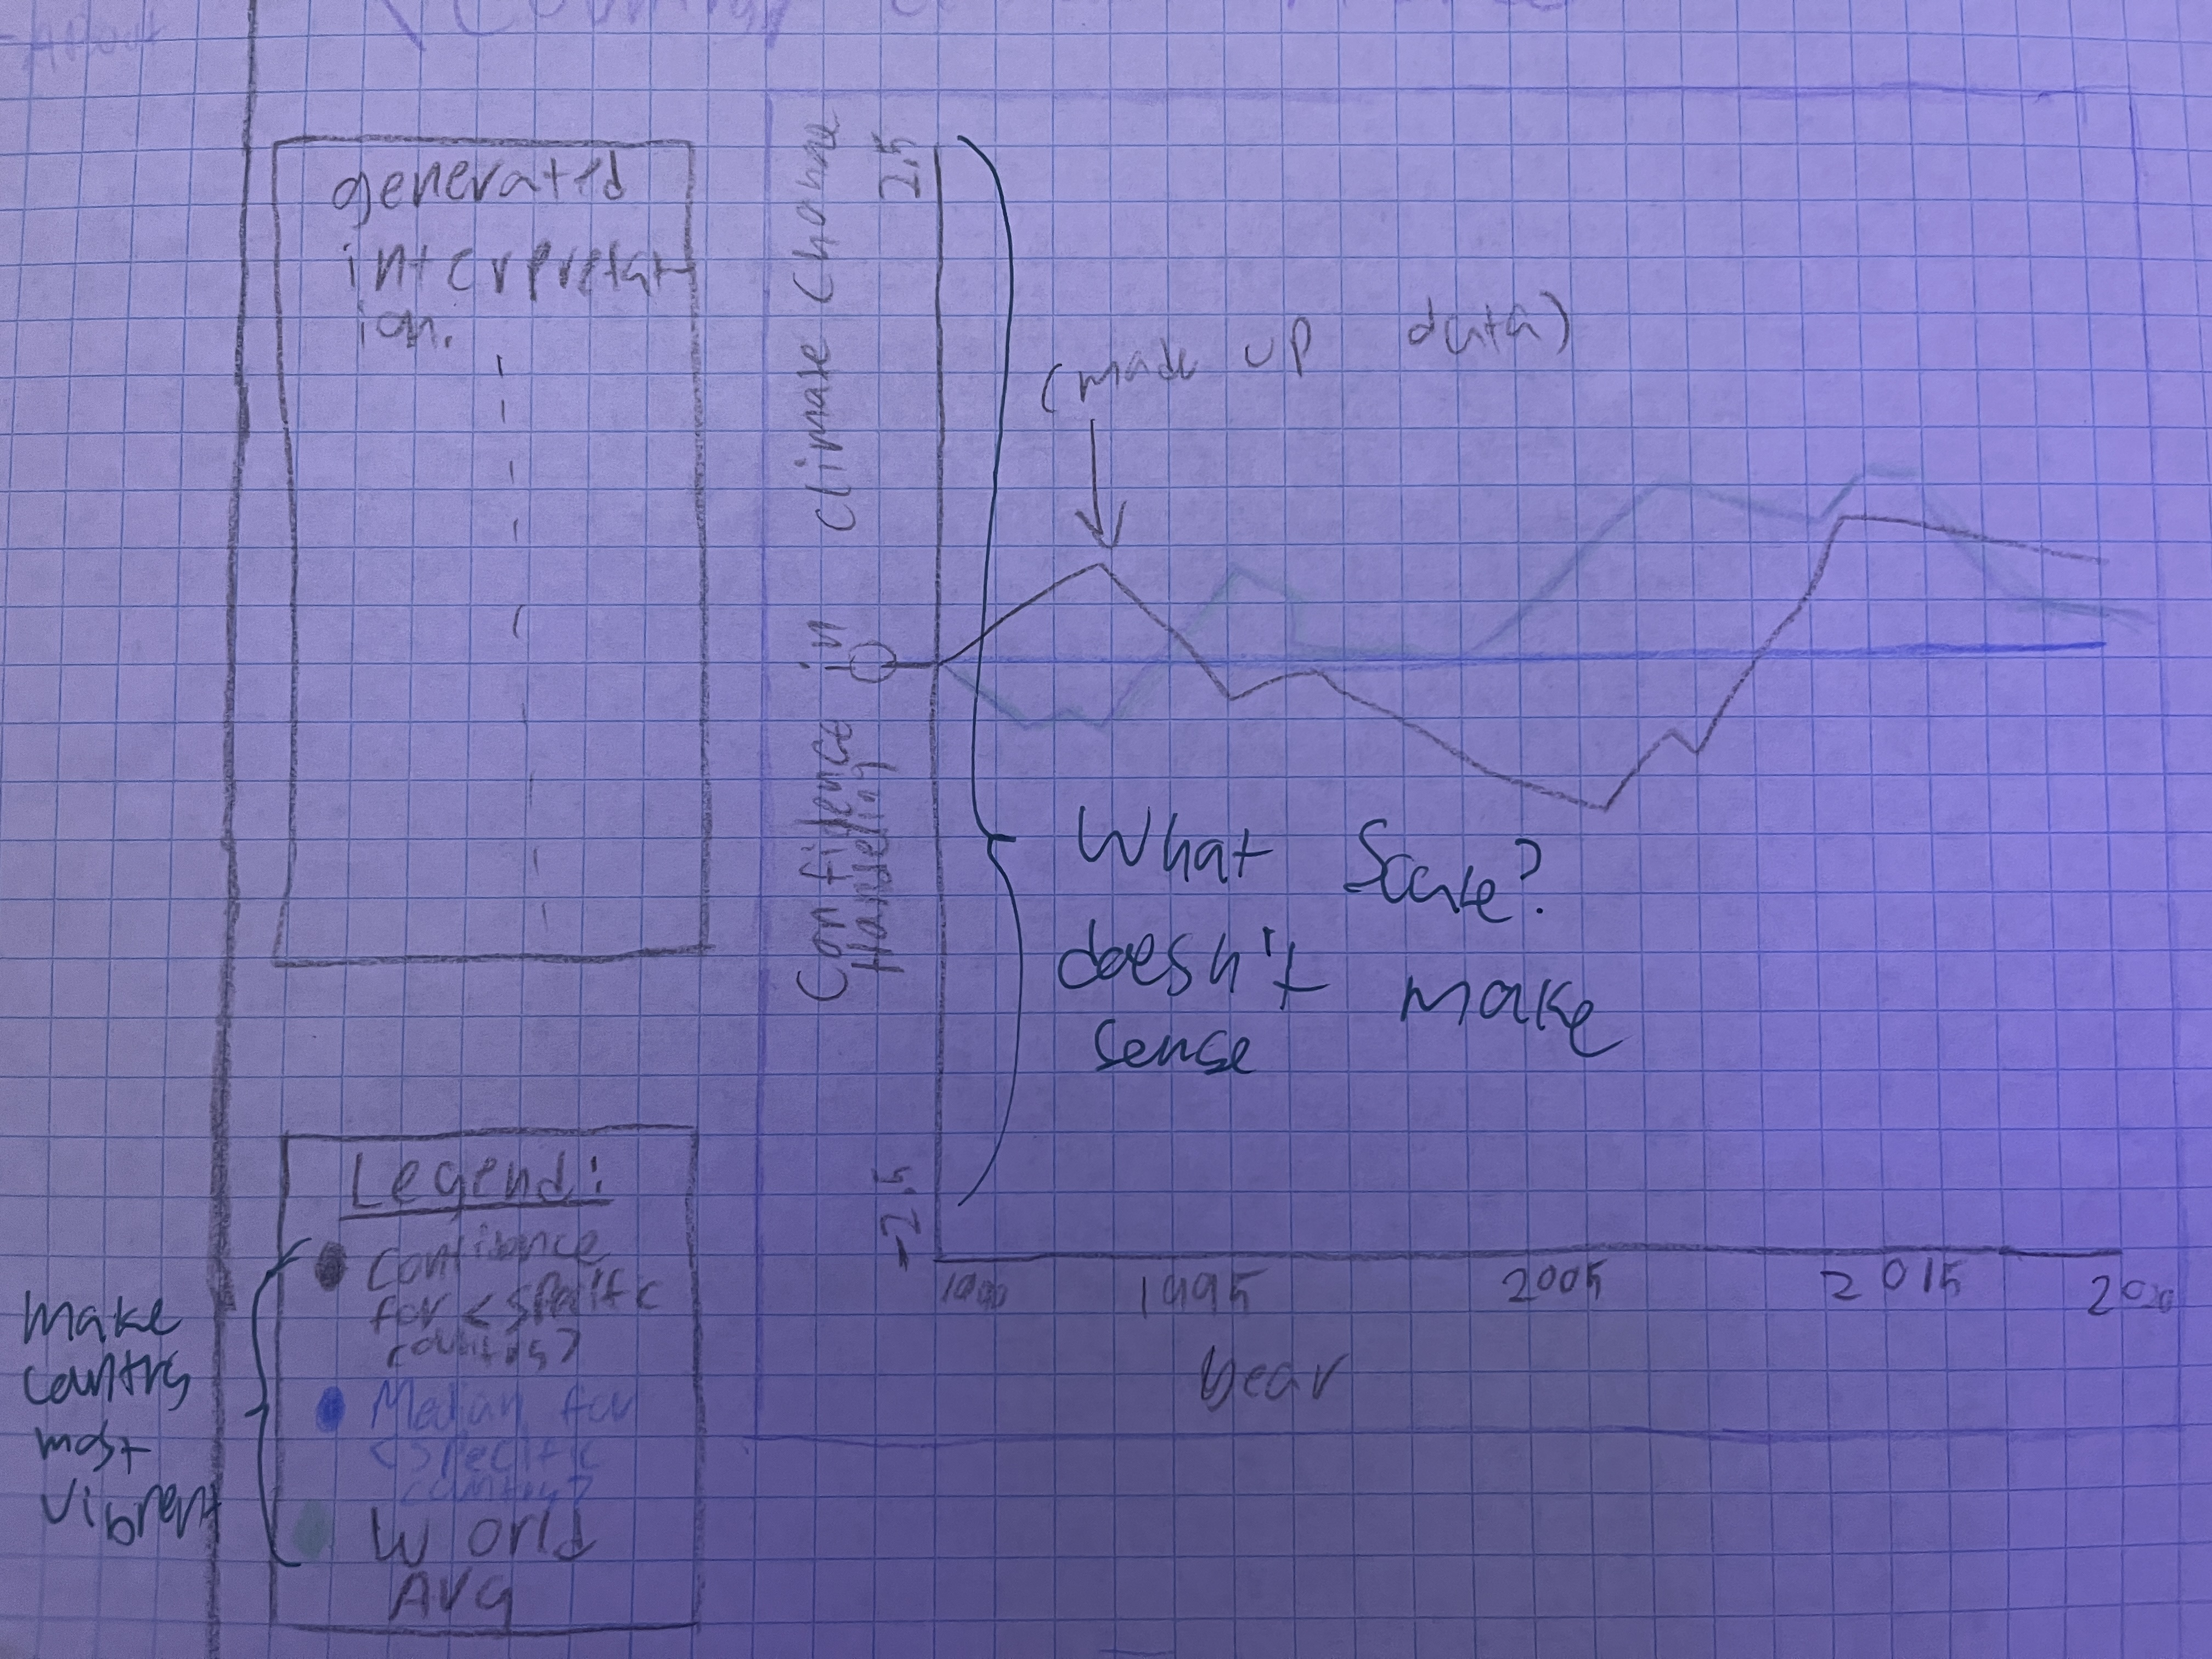 generated
interpretat
ion.
Legend:
Confidance
for <specific
country>
Median for
<specific
country>
World
Avg
make
country
most
vibrant
Confidence in Climate Change
Handeling
2.5
0
-2.5
(made up data)
What Scale?
doesn't make
sense
1990
1995
2005
2015
2020
Year